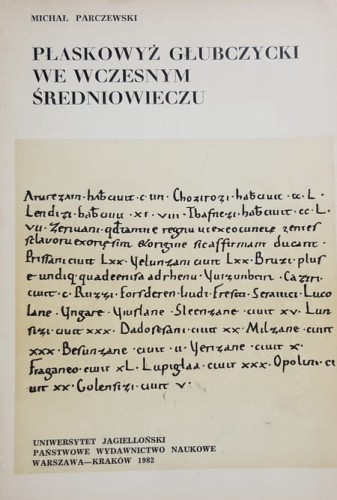 MICHAŁ PARCZEWSKI
PŁASKOWYŻ GŁUBCZYCKI
WE WCZESNYM
ŚREDNIOWIECZU
habent civit · c · un · Chozirozi · habent civit · cc · L ·
Lendizi · habent civit · xc · viii · Thafnezi · habent civit · cc · L ·
vii · Zeriuani · qd tantu e regnu ut ex eo cuncte gentes
sclavoru exorte sint & origine sicut affirmant ducant ·
Prissani civit Lxx · Velunzani civit Lxx · Bruzi · plus
e undiq · quadeenisa adrhenu · Vuizunbeire · Caziri ·
civit · c · Ruzzi · Forsderen · liudi · Fresiti · Seravici · Luco
lane · Ungare · Vuislane · Sleenzane · civit xv · Lun
sizi · civit xxx · Dadosesani · civit xx · Milzane · civit
xxx · Besunzane · civit · ii · Verizane · civit x ·
Fraganeo · civit xL · Lupiglaa · civit xxx · Opolini · ci
vit xx · Golensizi · civit v ·
UNIWERSYTET JAGIELLOŃSKI
PAŃSTWOWE WYDAWNICTWO NAUKOWE
WARSZAWA—KRAKÓW 1982